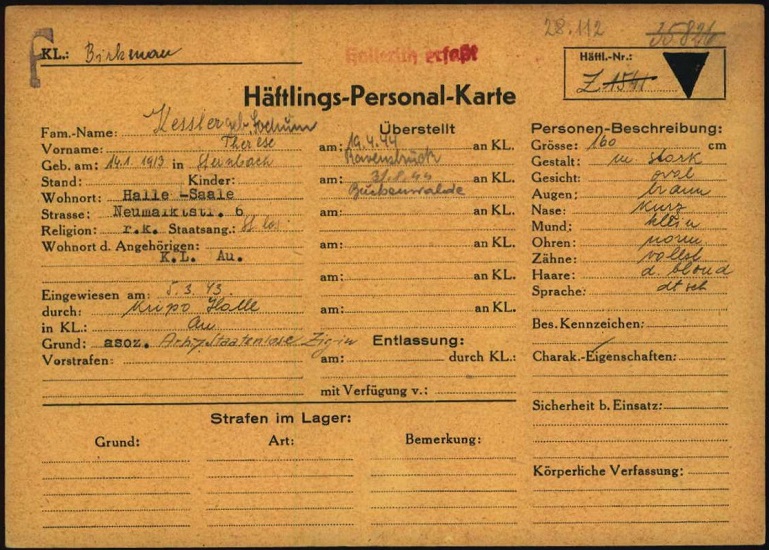 28.112 35826
KL.: Birkenau
Hollerith erfaßt
Häftl.-Nr.:
Z 1541
Häftlings-Personal-Karte
Fam.-Name: Kessler geb.
Vorname: Therese
Geb. am: 14.1.1913 in
Stand: Kinder:
Wohnort: Halle -Saale
Strasse: Neumarktstr. 6
Religion: r.k. Staatsang.: St. los
Wohnort d. Angehörigen:
K.L. Au.
Eingewiesen am: 5.3.43.
durch: Kripo Halle
in KL.: Au
Grund: asoz. Staatenlose Zigin
Vorstrafen:
Überstellt
am: 19.4.44 an KL.
Ravensbrück
am: 31.8.44 an KL.
Buchenwalde
am: an KL.
am: an KL.
am: an KL.
am: an KL.
am: an KL.
Entlassung:
am: durch KL.:
mit Verfügung v.:
Personen-Beschreibung:
Grösse: 160 cm
Gestalt: m stark
Gesicht: oval
Augen: braun
Nase: kurz
Mund: klein
Ohren: norm.
Zähne: vollst
Haare: d. blond
Sprache: dtsch
Bes. Kennzeichen:
Charak.-Eigenschaften:
Sicherheit b. Einsatz:
Körperliche Verfassung:
Strafen im Lager:
Grund: Art: Bemerkung: